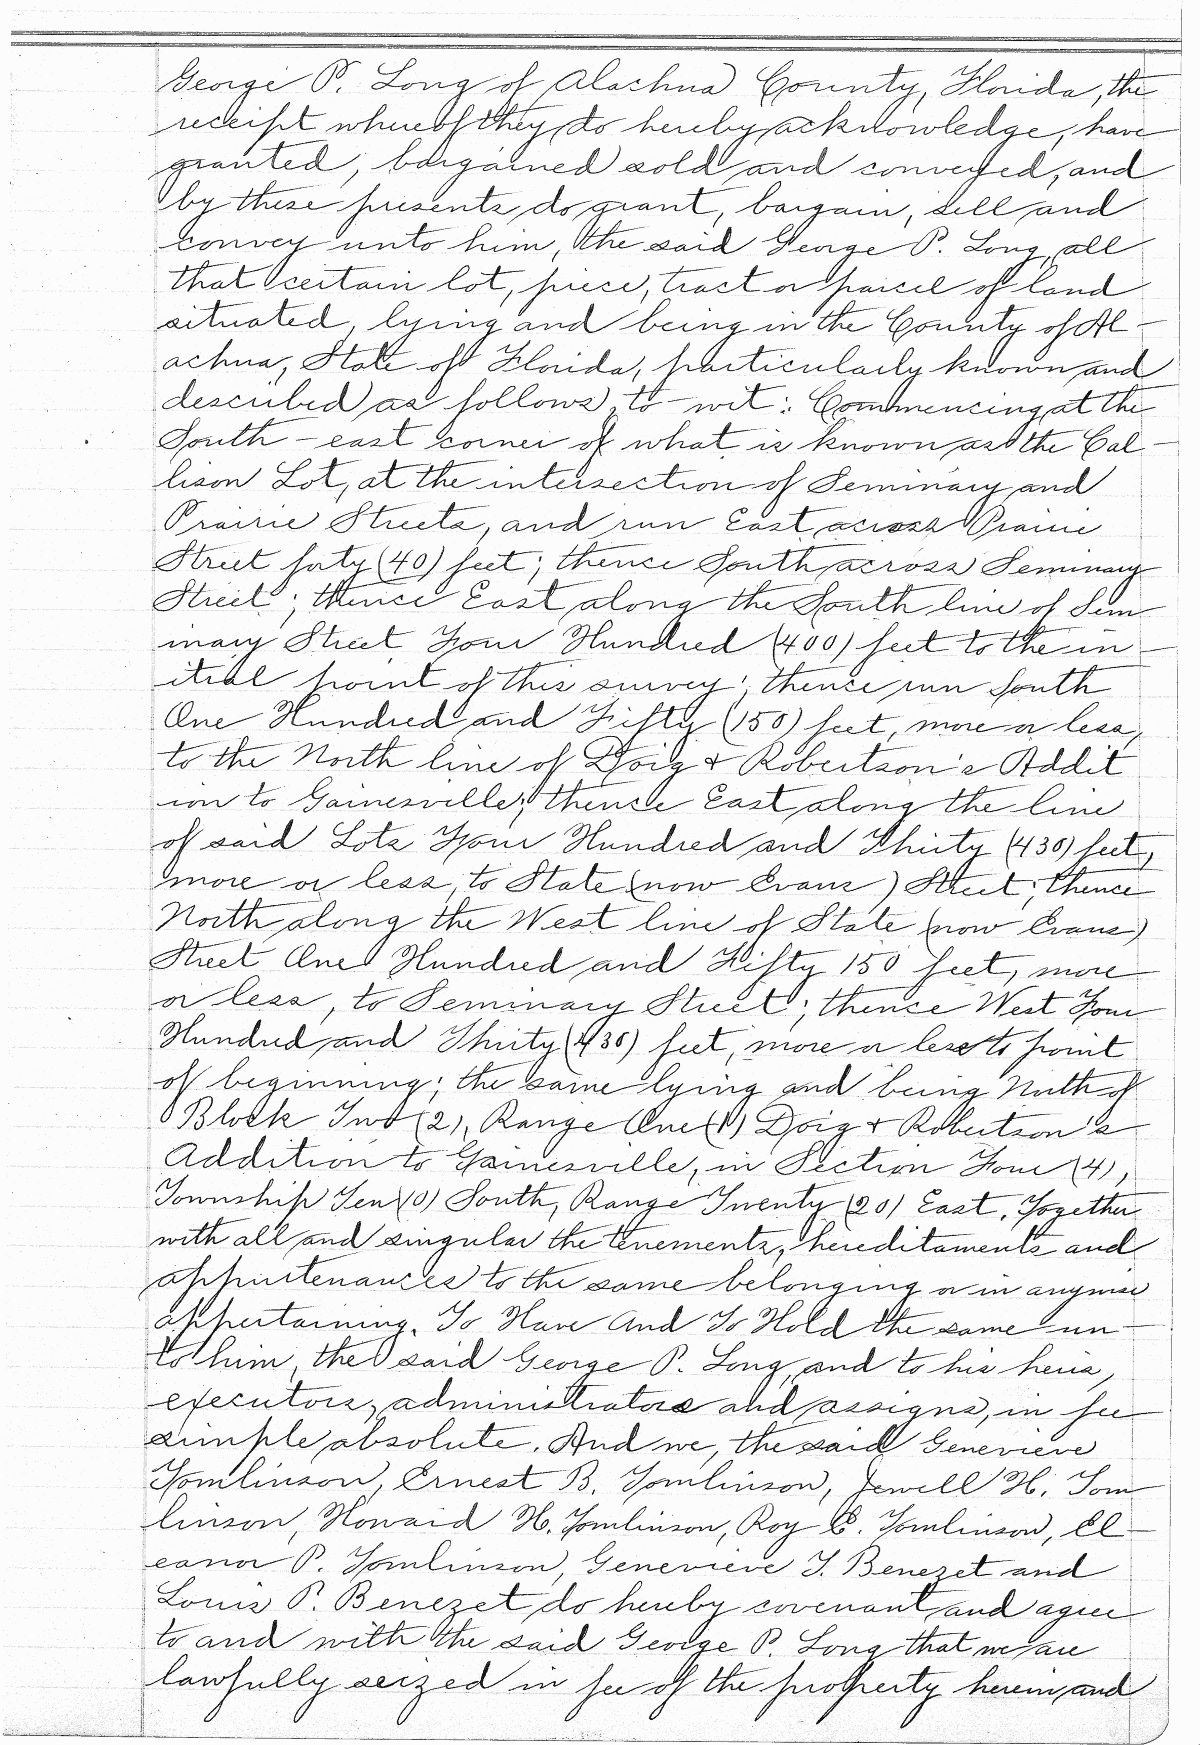 George P. Long of Alachua County, Florida, the
receipt whereof they do hereby acknowledge, have
granted, bargained sold and conveyed, and
by these presents do grant, bargain, sell and
convey unto him, the said George P. Long, all
that certain lot, piece, tract or parcel of land
situated, lying and being in the County of Al-
achua, State of Florida, particularly known and
described as follows, to-wit: Commencing at the
South-east corner of what is known as the Cal-
lison Lot, at the intersection of Seminary and
Prairie Streets, and run East across Prairie
Street forty (40) feet; thence South across Seminary
Street; thence East along the South line of Sem-
inary Street Four Hundred (400) feet to the in-
itial point of this survey; thence run South
One Hundred and Fifty (150) feet, more or less,
to the North line of Doig & Robertson's Addit
ion to Gainesville; thence East along the line
of said Lots Four Hundred and Thirty (430) feet,
more or less, to State (now Evans) Street; thence
North along the West line of State (now Evans)
Street One Hundred and Fifty 150 feet, more
or less, to Seminary Street; thence West Four
Hundred and Thirty (430) feet, more or less to point
of beginning; the same lying and being North of
Block Two (2), Range One (1) Doig & Robertson's
Addition to Gainesville, in Section Four (4),
Township Ten (10) South, Range Twenty (20) East. Together
with all and singular the tenements, hereditaments and
appurtenances to the same belonging or in anywise
appertaining. To Have And To Hold the same un-
to him, the said George P. Long, and to his heirs,
executors, administrators and assigns, in fee
simple absolute. And we, the said Genevieve
Tomlinson, Ernest B. Tomlinson, Jewell H. Tom
linson, Howard H. Tomlinson, Roy E. Tomlinson, El-
eanor P. Tomlinson, Genevieve T. Benezet and
Louis P. Benezet do hereby covenant and agree
to and with the said George P. Long that we are
lawfully seized in fee of the property herein and